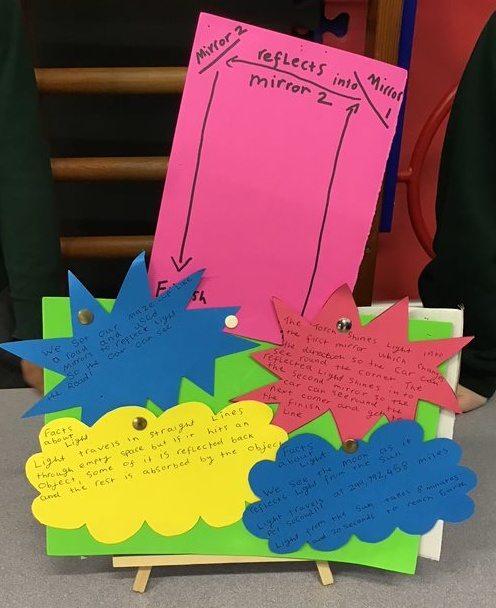 Mirror 2
reflects into
mirror 2
Mirror
1
We set our maze up like
a road and used
Mirrors to reflect light
So the car can see
the Road!
The Torch Shines Light into
the first mirror which changes
the direction so the Car Can
See round the corner. The
reflected Light Shines into
the second mirror so the
car can see the
next corner and get to
the finish
Line
Facts
about Light
Light travels in straight Lines
through empty space but if it hits an
Object, some of it is reflected back
and the rest is absorbed by the object
Facts
about Light
We see the moon as it
reflects light from the Sun!
Light travels at 299,792,458 metres
per second!!
Light from the Sun takes 8 minutes
and 20 seconds to reach Earth